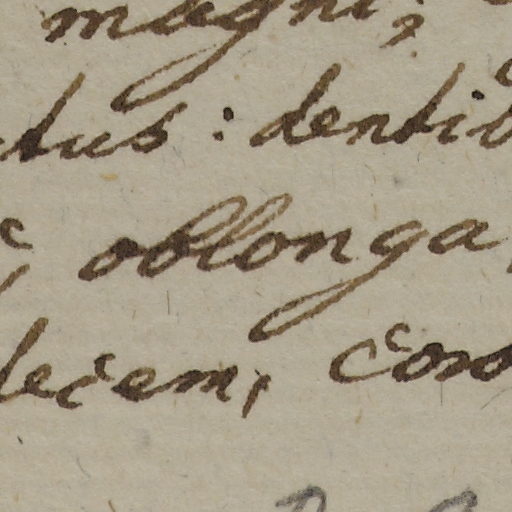 magni;
tus: denti
oblonga
decem, coro